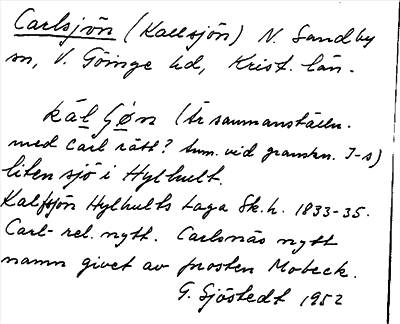 Carlsjön (Kallsjön) N. Sandby
sn, V. Göinge hd, Krist. län.
kål ʃøn (Är sammanställn.
med Carl rätt? Anm. vid granskn. I-s)
liten sjö i Hylhult.
Kalfsjön Hylhults laga Sk.h. 1833-35.
Carl- rel. nytt. Carlsnäs nytt
namn givet av prosten Mobeck.
G. Sjöstedt 1952